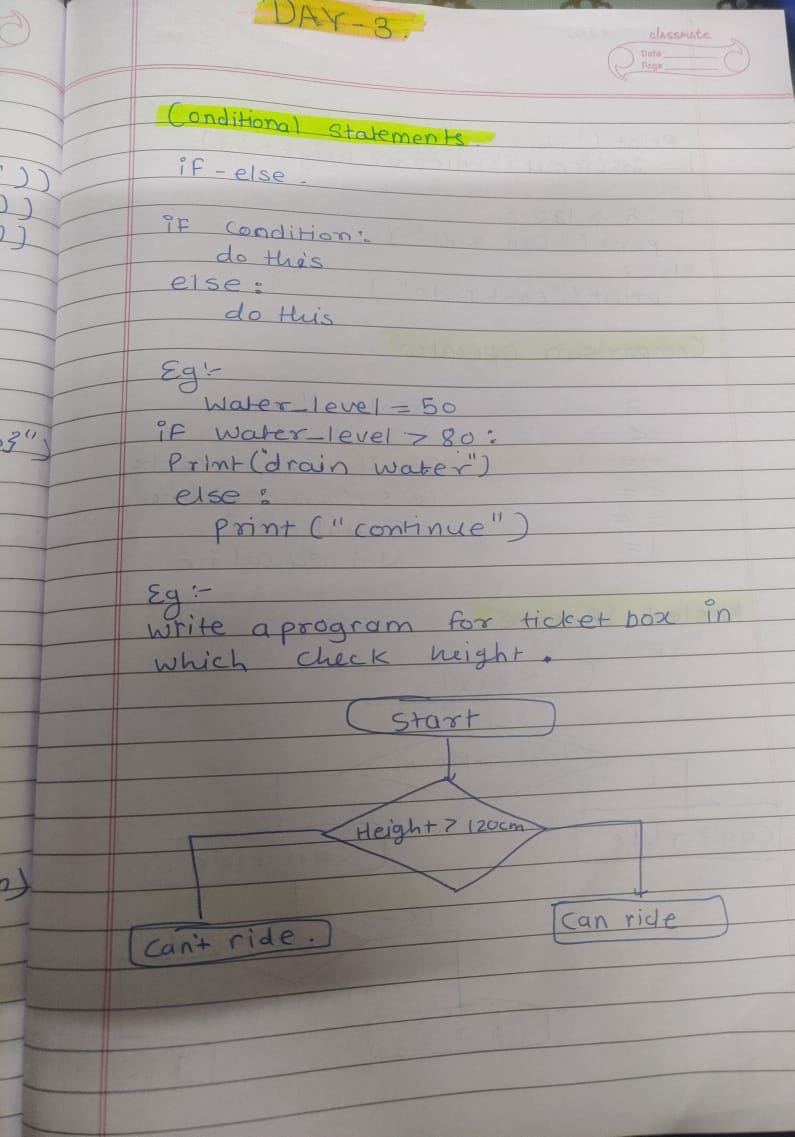 DAY-3.
classmate
Date
Page
Conditional statements.
if-else.
if condition:
do this
else:
do this
Eg:-
Water_level = 50
if water_level > 80:
Print("drain water")
else:
print ("continue")
Eg:-
write a program for ticket box in
which check height.
Start
Height > 120cm
can't ride.
can ride